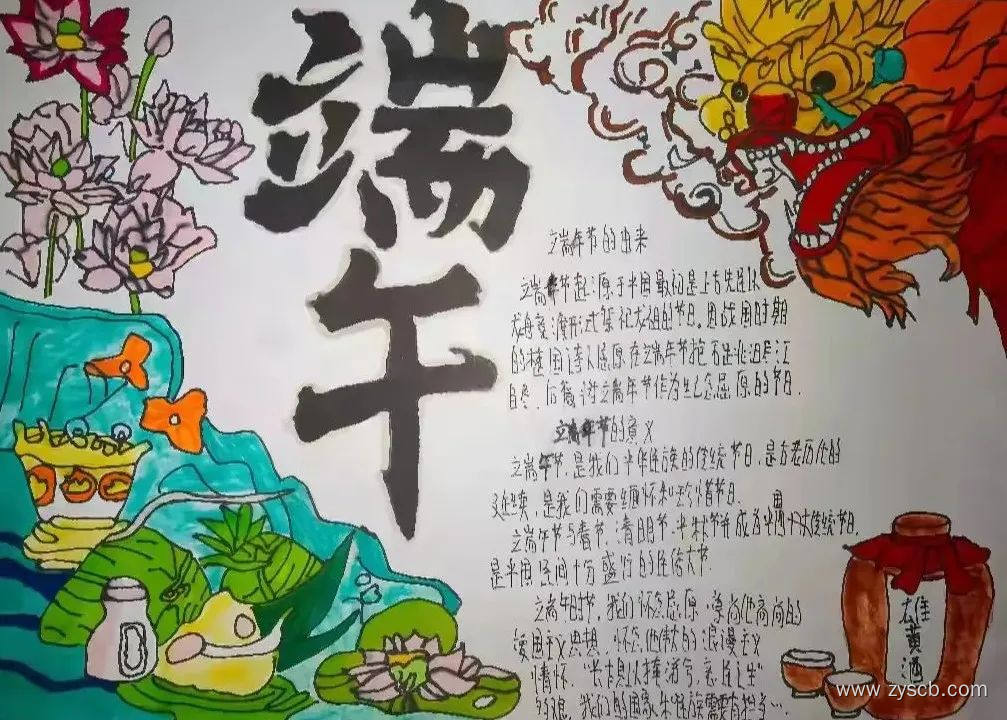 端午
端午节的由来
端午节起源于中国最初是上古先民以
龙舟竞渡形式祭祀龙祖的节日。因战国时期
的楚国诗人屈原在端午节抱石跳汨罗江
自尽，后被端午节作为纪念屈原的节日.
端午节的意义
端午节,是我们中华民族的传统节日,是古老历史的
延续,是我们需要缅怀和珍惜节日.
端午节与春节、清明节、中秋节并成为中国四大传统节日.
是中国民间十分盛行的民俗大节.
端午时节,我们怀念屈原,崇尚他高尚的
爱国主义思想,怀念他的浪漫主义
情怀."长太息以掩涕兮,哀民生"
的艰,我们的国家和民族需要有担当…
雄黄酒
www.zyscb.com